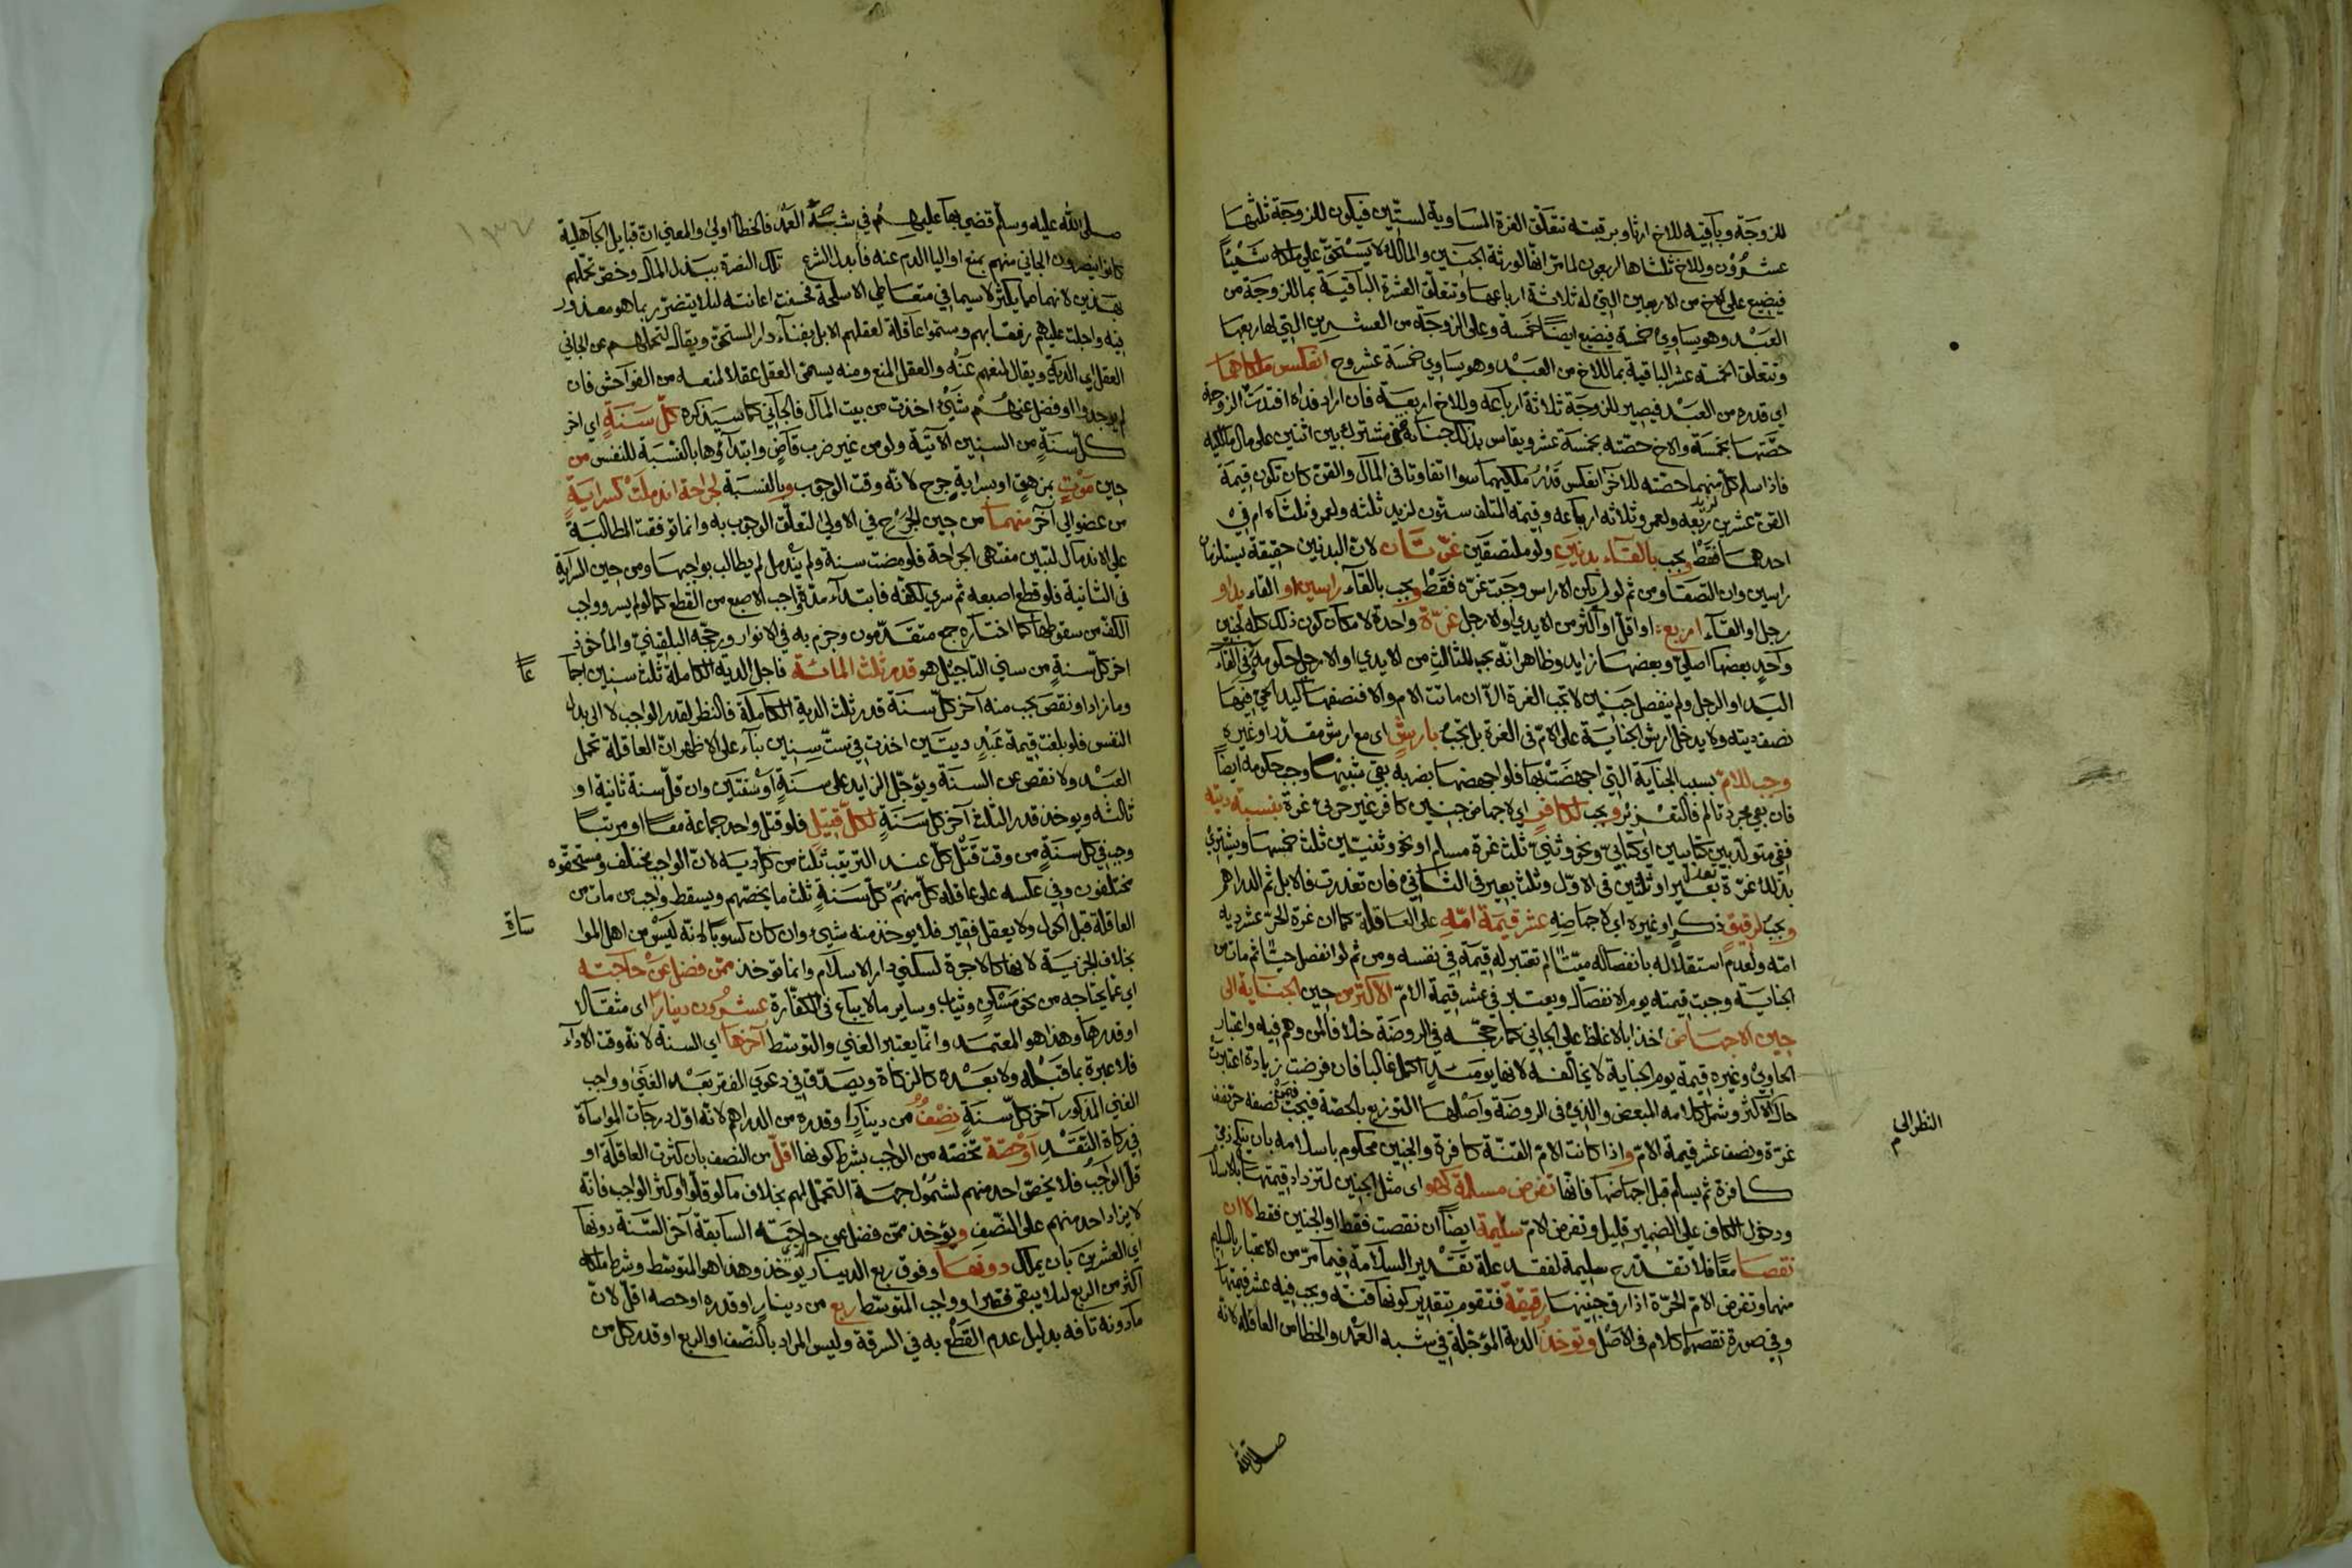 للزوجة وباقيه للاخ ارثا وبرقبته تتعلق الغرة المساوية لستين فيكون للزوجة ثلثها
عشرون وللاخ ثلثاها اربعون لما مر انها لورثة الجنين والمالك لا يستحق على ملكه شيئا
فيضيع على الاخ من الاربعين التي له ثلاثة ارباعها وتتعلق العشرة الباقية بما للزوجة من
العبد وهو يساوي خمسة فيضيع ايضا خمسة وعلى الزوجة من العشرين التي لها ربعها
وتتعلق الخمسة عشر الباقية بما للاخ من العبد وهو يساوي خمسة عشر وح انعكس ملكاهما
اي قدره من العبد فيصير للزوجة ثلاثة ارباعه وللاخ اربعة فان اراد فداه افتدت الزوجة
حصتها بخمسة والاخ حصته بخمسة عشر ويقاس بذلك جناية قن مشترك بين اثنين على مال مالكيه
فاذا سلم كل منهما حصته للاخر انعكس قدر ملكيهما سوا اتفاوتا في المال والقن كان تكون قيمة
القن عشرين لزيد ربعه ولعمرو ثلاثة ارباعه وقيمة المتلف ستون لزيد ثلثه ولعمرو ثلثاه ام في
احدهما فقط ويجب بالقاء بدنين ولو ملتصقين غرتان لان البدنين حقيقة يستلزمان
راسين وان التصقا ومن ثم لو لم يكن الا راس وجبت غرة فقط ويجب بالقاء راسين او القاء يد او
رجل او القاء اربع او اقل او اكثر من الايدي او الارجل غرة واحدة لامكان كون ذلك كله لجنين
واحد بعضها اصلي وبعضها زايد وظاهر انه يجب للثالث من الايدي او الارجل حكومة وفي القاء
اليد او الرجل ولم ينفصل جنين لا تجب الغرة الا ان ماتت الام والا فنصفها كيد الحي فيها
نصف ديته ولا يدخل ارش الجناية على الام في الغرة بل تجب بارش اي مع ارش مقدر او غيره
وجب للام بسبب الجناية التي اجهضت بها فلو اجهضها بضربه بقي شينها وجب حكومة ايضا
فان بقي مجرد تالم فالتعزير ويجب لكافر اي لاجهاض جنين كافر غير حربي غرة بنسبة ديته
ففي متولد بين كتابيين اي كتابي ونحو وثني ثلث غرة مسلم او نحو وثنيين ثلث خمسها ويشترى
بذلك غرة تعدل بعيرا وثلثين في الاول وثلث بعير في الثاني فان تعذرت فالابل ثم الدراهم
ويجب لرقيق ذكر او غيره اي لاجهاضه عشر قيمة امه على العاقلة كما ان غرة الحر عشر دية
امه ولعدم استقلاله بانفصاله ميتا لم تعتبر له قيمة في نفسه ومن ثم لو انفصل حيا ثم مات من
الجناية وجبت قيمته يوم الانفصال ويعتبر في عشر قيمة الام الاكثر من حين الجناية الى
حين الاجهاض اخذا بالاغلظ على الجاني كما رجحه في الروضة خلافا لمن وهم فيه واعتبار
الحاوي وغيره قيمة يوم الجناية لا يخالفه لانها يومئذ اكمل غالبا فان فرضت زيادة اعتبرت
حالة الاكثر وشمل كلامه المبعض والذي في الروضة واصلها التوزيع بالحصة فيجب في من نصفه حر نصف
غرة ونصف عشر قيمة الام واذا كانت الام القنة كافرة والجنين محكوم باسلامه بان يكون من
كافرة ثم يسلم قبل اجهاضها فانها تفرض مسلمة كهو اي مثل الجنين لتزداد قيمتها بالاسلام
ودخول الكاف على الضمير قليل وتفرض الام سليمة ايضا ان نقصت فقط او الجنين فقط لا ان
نقصا معا فلا تقدر ح سليمة لفقد علة تقدير السلامة فيما مر من الاعتبار بالسليم
منهما وتفرض الام الحرة اذا رق جنينها رقيقة فتقوم بتقدير كونها قنة ويجب فيه عشر قيمتها
وفي صورة نقصهما كلام في الاصل وتوخذ الدية المؤجلة في شبه العمد والخطا من العاقلة لانه
النظر الى م
صلى الله
١٣٧
صلى الله عليه وسلم قضى بها عليهم في شبه العمد فالخطا اولى والمعنى ان قبايل الجاهلية
كانوا ينصرون الجاني منهم بمنع اوليا الدم عنه فأبدل الشرع تلك النصرة ببذل المال وخص تحملهم
بهذين لانهما مما يكثر لا سيما في متعاطي الاسلحة فحسنت اعانته لئلا يتضرر بما هو معذور
فيه واجلت عليهم رفقا بهم وسموا عاقلة لعقلهم الابل بفناء دار المستحق ويقال لتحملهم عن الجاني
العقل اي الدية ويقال لمنعهم عنه والعقل المنع ومنه يسمى العقل عقلا لمنعه من الفواحش فان
لم يوجدوا او فضل عنهم شيء اخذت من بيت المال فالجاني كما سيذكره كل سنة اي اخر
كل سنة من السنين الاتية ولو من غير ضرب قاض وابتداؤها بالنسبة للنفس من
حين موت بمزهق او بسراية جرح لانه وقت الوجوب وبالنسبة لجراحة اندملت كسراية
من عضو الى آخر منهما من حين الجرح في الاولى لتعلق الوجوب به وانما توقفت المطالبة
على الاندمال لتبين منتهى الجراحة فلو مضت سنة ولم يندمل لم يطالب بواجبها ومن حين السراية
في الثانية فلو قطع اصبعه ثم سري لكفه فابتداء مدة واجب الاصبع من القطع كما لو لم يسر وواجب
الكف من سقوطها كما اختاره جمع متقدمون وجزم به في الانوار ورجحه البلقيني والماخوذ
اخر كل سنة من سني التاجيل هو قدر ثلث المائة فاجل الدية الكاملة ثلث سنين اجما
عا
وما زاد او نقص يجب منه آخر كل سنة قدر ثلث الدية الكاملة فالنظر لقدر الواجب لا الى بدل
النفس فلو بلغت قيمة عبد ديتين اخذت في ست سنين بناء على الاظهر ان العاقلة تحمل
العبد ولا نقص عن السنة ويؤجل الزايد على سنة او سنتين وان قل سنة ثانية او
ثالثه ويوخذ قدر الثلث آخر كل سنة لكل قتيل فلو قتل واحد جماعة معا او مرتبا
وجب في كل سنة من وقت قتل كل عند الترتيب ثلث من كل دية لان الواجب مختلف ومستحقوه
مختلفون وفي عكسه على عاقلة كل منهم كل سنة ثلث ما يخصهم ويسقط واجب من مات من
العاقلة قبل الحول ولا يعقل فقير فلا يوخذ منه شيء وان كان كسوبا لانه ليس من اهل الموا
ساة
بخلاف الجزية لانها كالاجرة لسكنى دار الاسلام وانما توخذ ممن فضل عن حاجته
اي عما يحتاجه من نحو مسكن وثياب وساير ما لا يباع في الكفارة عشرون دينارا اي مثقالا
او قدرها وهذا هو المعتمد وانما يعتبر الغني والتوسط آخرها اي السنة لانه وقت الاداء
فلا عبرة بما قبله ولا بعده كالزكاة ويصدق في دعوى الفقر بعد الغنى وواجب
الغني المذكور آخر كل سنة نصف من دينار او قدره من الدراهم لانه اول درجات المواساة
في زكاة النقد او حصة تخصه من الواجب بشرط كونها اقل من النصف بان كثرت العاقلة او
قل الواجب فلا يخص احد منهم لشمول جهة التحمل لهم بخلاف ما لو قلوا او كثر الواجب فانه
لا يزاد احد منهم على النصف ويؤخذ ممن فضل عن حاجته السابقة آخر السنة دونها
اي العشرين بان يملك دونها وفوق ربع الدينار الذي يوخذ وهذا هو المتوسط وشرط ملكه
اكثر من الربع لئلا يبقى فقيرا وواجب المتوسط ربع من دينار او قدره او حصه اقل لان
ما دونه تافه بدليل عدم القطع به في السرقة وليس المراد بالنصف او الربع او قدر كل من